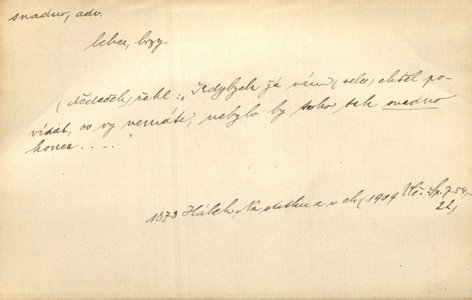 snadno, adv.
lehce, brzy
(dědeček) řekl: „Kdybych já vám (selce) chtěl po-
vídat, co vy nemáte, nebylo by toho tak snadno
konce . . . . "
1873 Hálek Na statku a v ch (1909 Vyb. Sp. 7. 54,-
22,